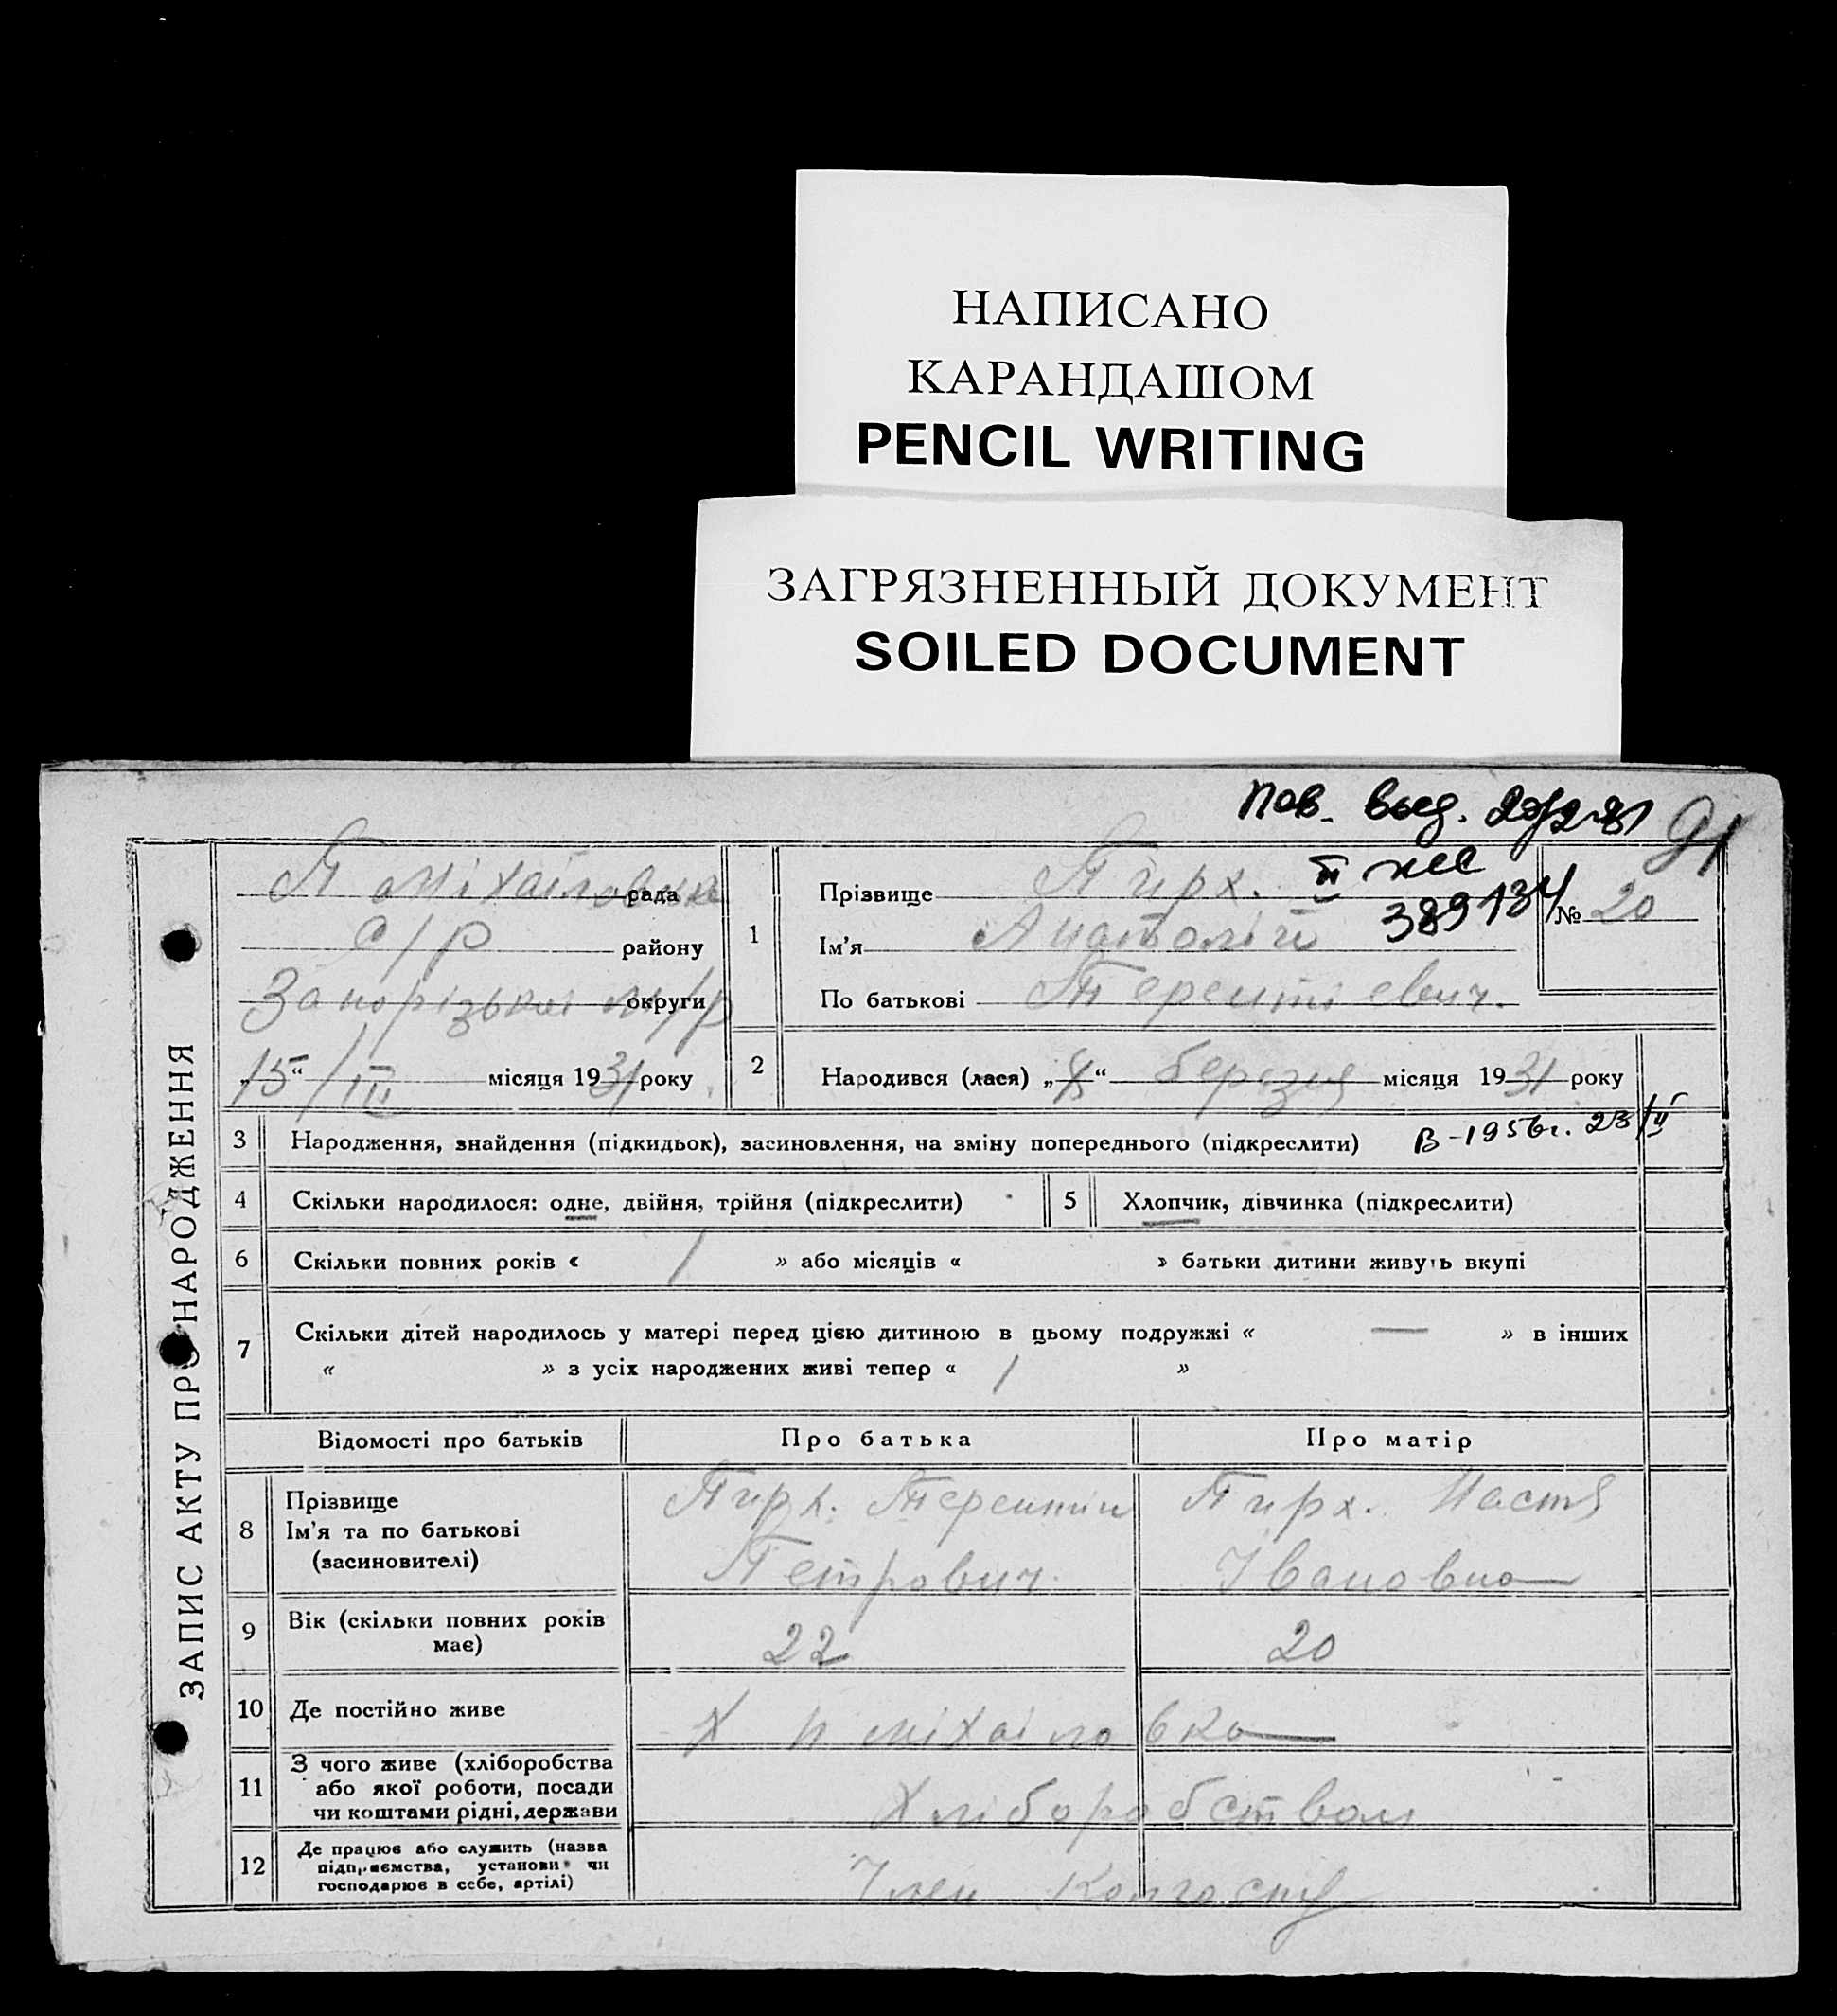 НАПИСАНО
КАРАНДАШОМ
PENCIL WRITING
ЗАГРЯЗНЕННЫЙ ДОКУМЕНТ
SOILED DOCUMENT
Пов. выд.
91
ЗАПИС АКТУ ПРО НАРОДЖЕННЯ
рада
с/р району
Запорізької м/р округи
„15“ / III місяця 1931 року
1
Прізвище Пирх.
389134
№ 20
Ім’я Анатолій
По батькові Терентіевич.
2
Народився (лася) „ “ березня місяця 1931 року
3 Народження, знайдення (підкидьок), засиновлення, на зміну попереднього (підкреслити) В-1956г. 23/II
4 Скільки народилося: одне, двійня, трійня (підкреслити) 5 Хлопчик, дівчинка (підкреслити)
6 Скільки повних років « 1 » або місяців « » батьки дитини живуть вкупі
7 Скільки дітей народилось у матері перед цією дитиною в цьому подружжі « — » в інших
« » з усіх народжених живі тепер « 1 »
Відомості про батьків Про батька Про матір
8 Прізвище
Ім’я та по батькові
(засиновителі)
Пирх. Терентий
Петрович.
Пирх. Настя
Івановна
9 Вік (скільки повних років
має)
22 20
10 Де постійно живе Х п міхаіловка
11 З чого живе (хліборобства
або якої роботи, посади
чи коштами рідні, держави
Хліборобством
12 Де працює або служить (назва
підприємства, установи чи
господарює в себе, артілі)
Член Колгоспу